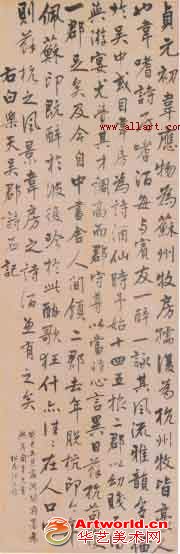 貞元初韋應物為蘇州牧房孺復為杭州牧皆豪人
也韋嗜詩房嗜酒每与賓友一醉一詠其風流雅韻多播
於吳中或目韋房為詩酒仙時年始十四五旅二郡以幼賤不得
與游宴尤覺其才調高而郡守尊以當時心言異日蘇杭苟獲
一郡足矣及今自中書舍人間領二郡去年脫杭印今年
佩蘇印既醉於彼復吟於此酣歌狂什亦往往在人口
則蘇杭之風景韋房之詩酒兼有之矣
右白樂天吳郡詩石記
www.allart.com
HUAYICN.COM
华艺美术网